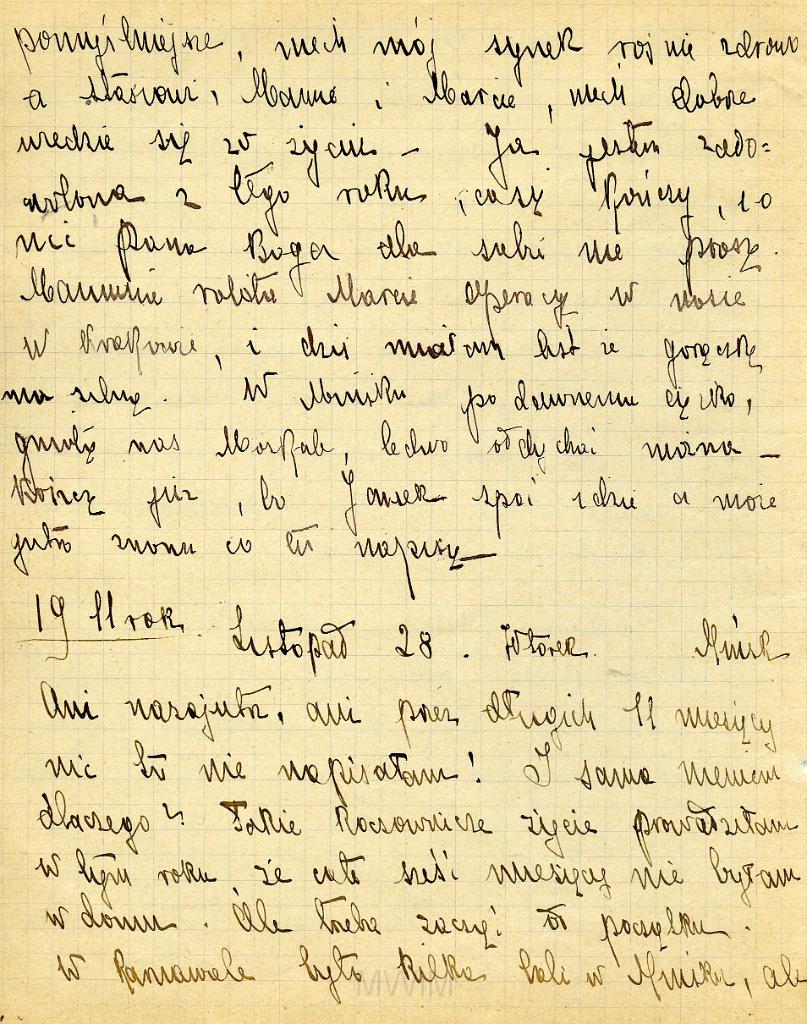 pomyślniejsze, niech mój synek rośnie zdrowo
a Stasiowi, Mamie i Marcie, niech dobrze
wiedzie się w życiu – Ja jestem zado=
wolona z tego roku, co się kończy, i o
nic Pana Boga dla siebie nie proszę.
Mamusie robiła Marcie operację w nosie
w Krakowie, i dziś miałam list że gorączkę
ma silną. W Mińsku po dawnemu ciężko,
gniotą nas Moskale, ledwo oddychać można –
Kończę już, bo Janek spać idzie a może
jutro znowu co tu napiszę –
1911 rok. Listopad 28. Wtorek. Mińsk
Ani nazajutrz, ani przez długich 11 miesięcy
nic tu nie napisałam! I sama nie wiem
dlaczego? Takie koczownicze życie prowadziłam
w tym roku, że całe sześć miesięcy nie byłam
w domu. Ale trzeba zacząć od początku.
W karnawale było kilka bali w Mińsku, ale
MWM